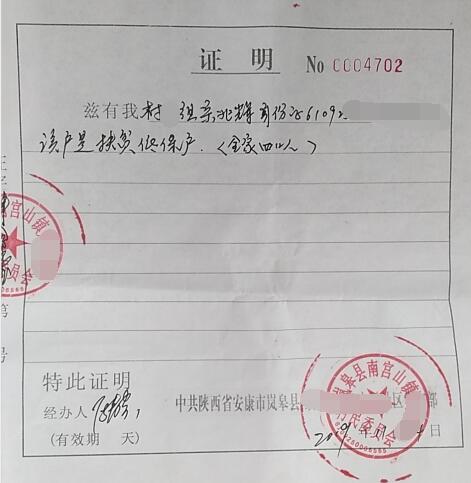 证 明 No 0004702
兹有我村 组 身份证6109
该户是扶贫低保户.(全家四口人)
特此证明
经办人
(有效期 天)
中共陕西省安康市岚皋县 区 部
2019年11 日
南宫山镇
员会
第
号
岚皋县南宫山镇
村民委员会